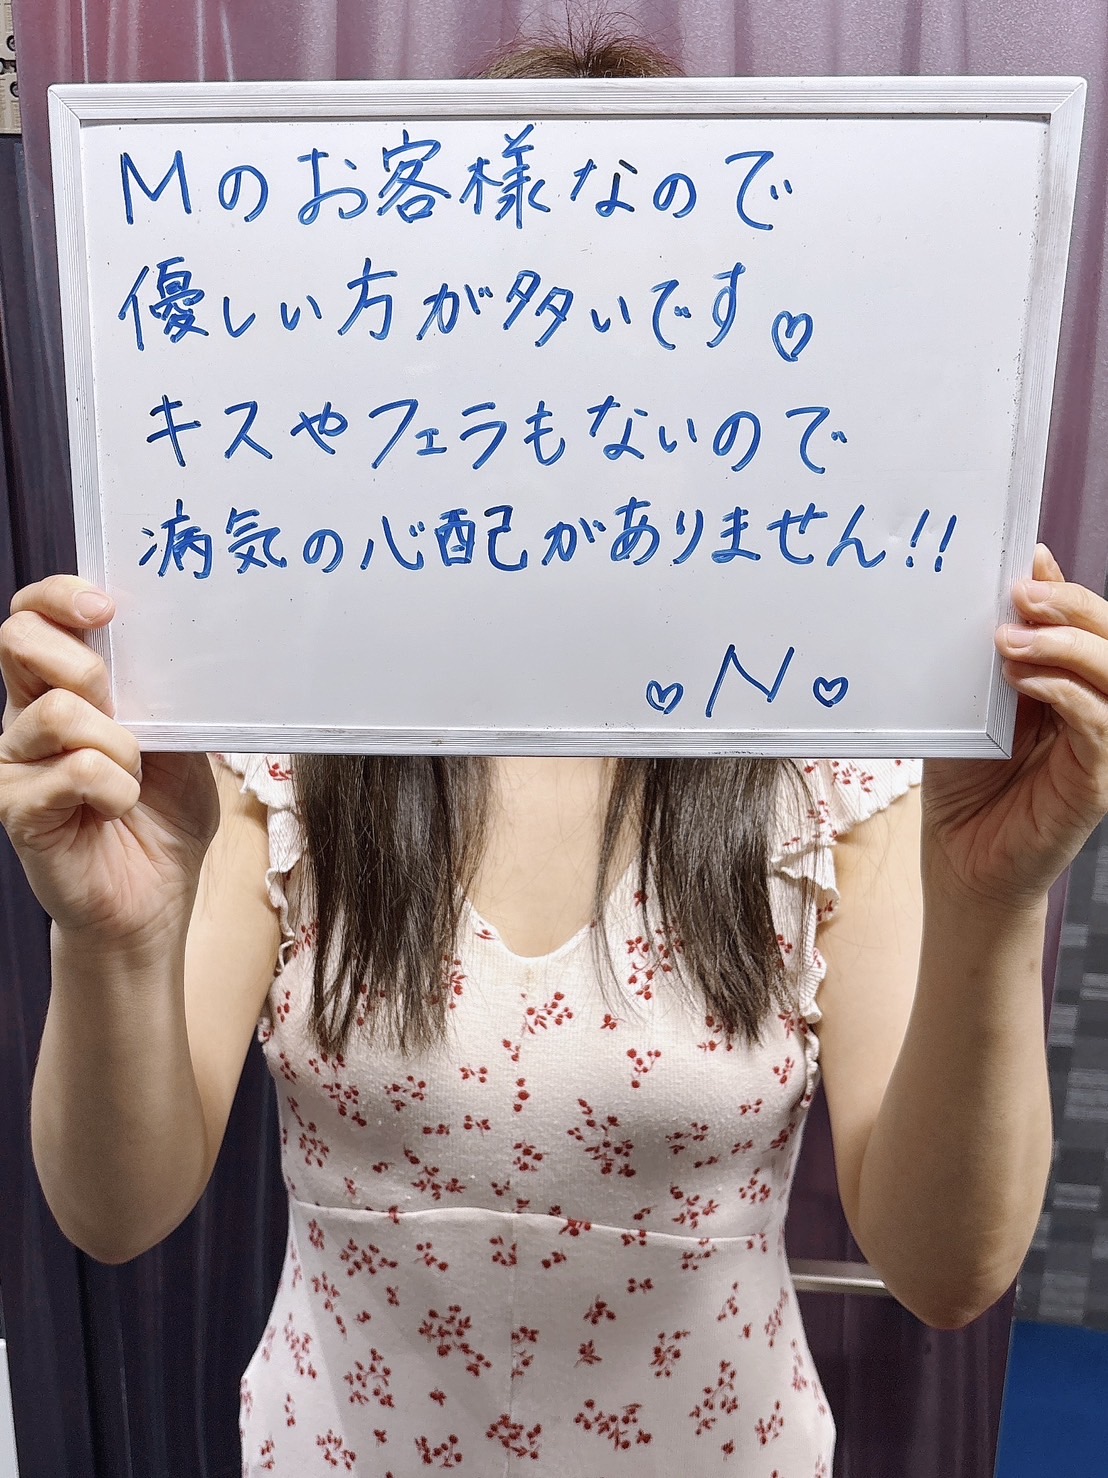 Mのお客様なので
優しい方が多いです♡
キスやフェラもないので
病気の心配がありません!!
♡N♡